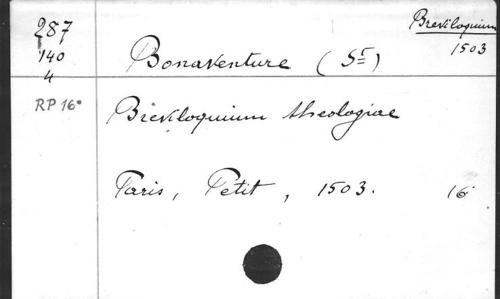 287
140
4
Breviloquium
1503
Bonaventure (St)
RP 16°
Breviloquium theologiae
Paris, Petit, 1503. 16°